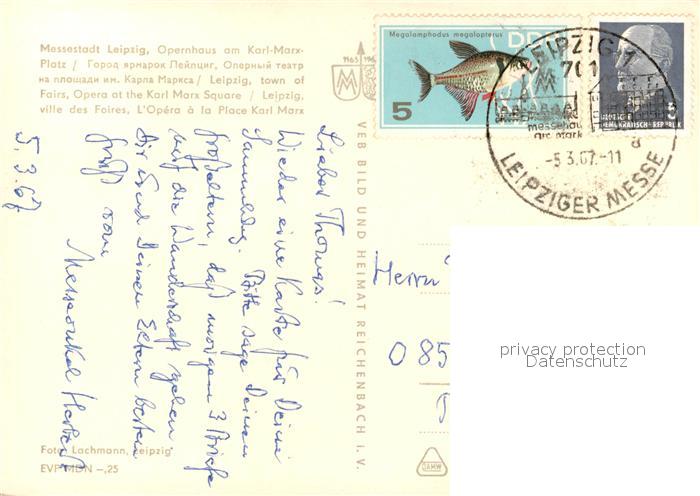 Messestadt Leipzig, Opernhaus am Karl-Marx-
Platz / Город ярмарок Лейпциг, Оперный театр
на площади им. Карла Маркса / Leipzig, town of
Fairs, Opera at the Karl Marx Square / Leipzig,
ville des Foires, L'Opéra à la Place Karl Marx
5.3.67
Lieber Thomas!
Wieder eine Karte für Deine
Sammlung. Bitte sage Deinen
Großeltern, daß morgen 3 Briefe
auf die Wanderschaft gehen
Dir und Deinen Eltern besten
Gruß vom
Messeonkel Herbert
Foto: Lachmann, Leipzig
EVP MDN -,25
VEB BILD UND HEIMAT REICHENBACH i. V.
Megalamphodus megalopterus
DDR
5
5
DEMOKRATISCHE REPUBLIK
LEIPZIG 1
701
-5.3.67.-11
LEIPZIGER MESSE
Herrn
085
privacy protection
Datenschutz
DAMW